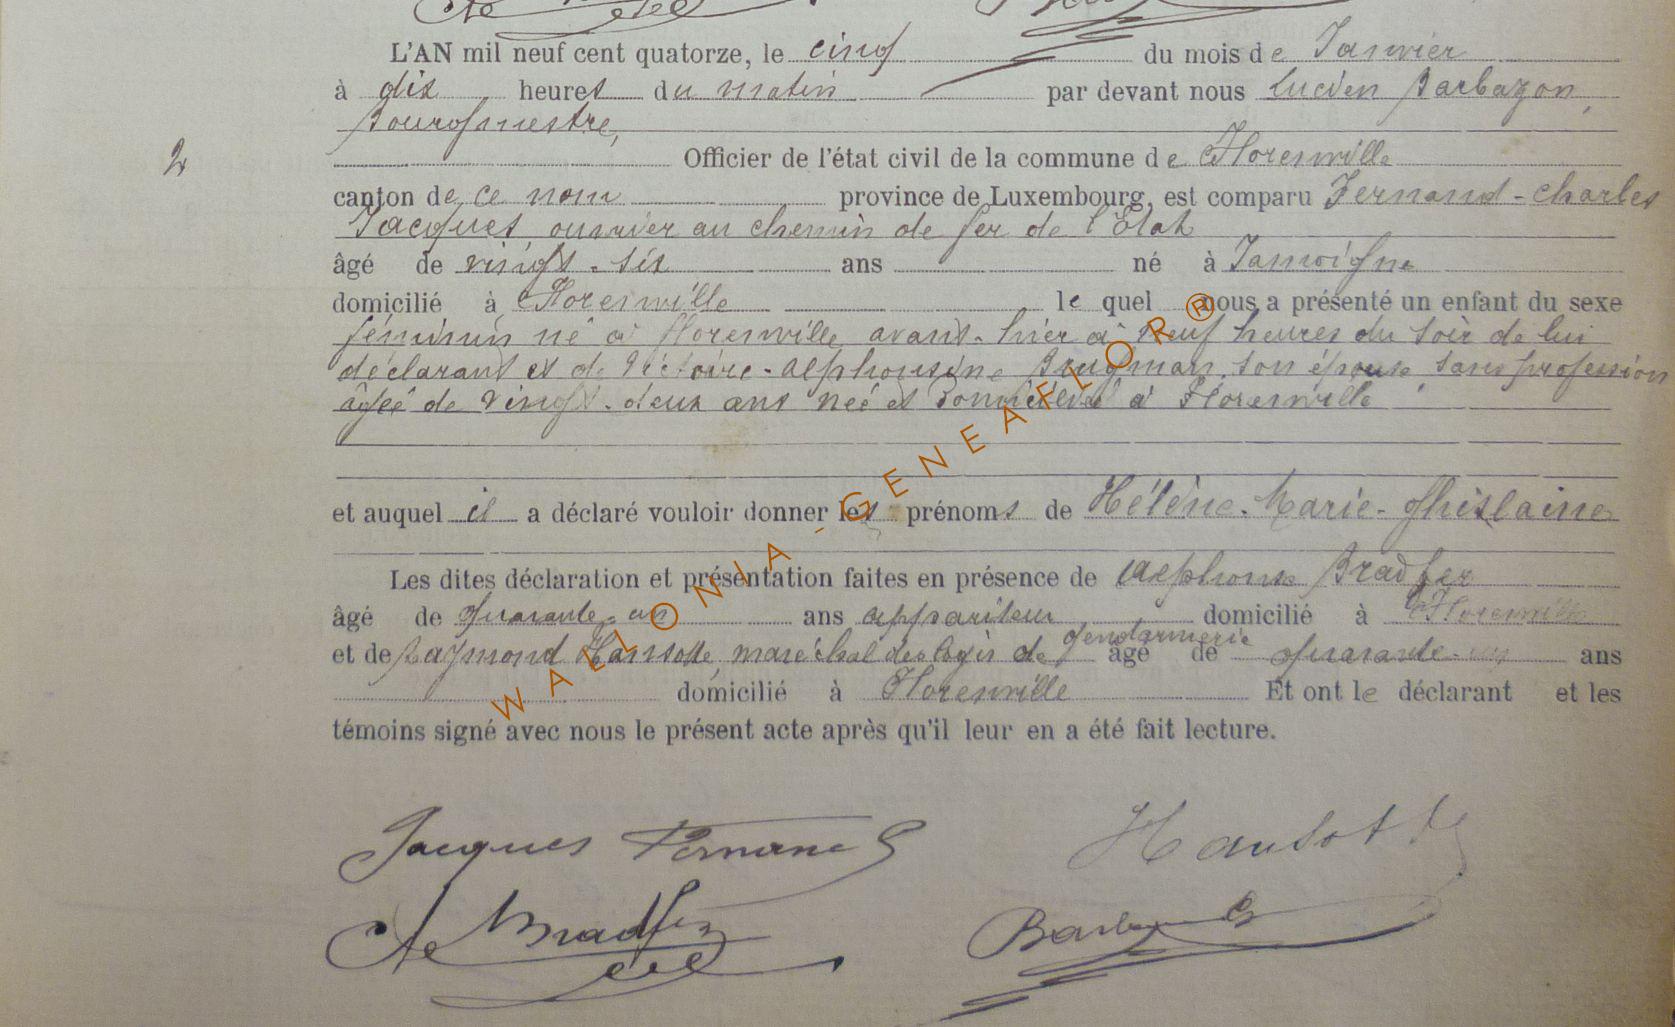 L'AN mil neuf cent quatorze, le cinq du mois de Janvier
à dix heures du matin par devant nous Lucien Barbazon,
Bourgmestre,
2
Officier de l'état civil de la commune de Florenville
canton de ce nom province de Luxembourg, est comparu Fernand-Charles
Jacques ouvrier au chemin de fer de l'Etat
âgé de vingt-six ans né à Jamoigne
domicilié à Florenville lequel nous a présenté un enfant du sexe
féminin né à Florenville avant-hier à neuf heures du soir de lui
déclarant et de Victoire-Alphonsine Brugman, son épouse, sans profession
âgée de vingt-deux ans née et domiciliée à Florenville
et auquel il a déclaré vouloir donner les prénoms de Hélène-Marie-Ghislaine
Les dites déclaration et présentation faites en présence de Alphonse Bradfer
âgé de quarante-un ans appariteur domicilié à Florenville
et de Raymond Hansotte, maréchal des logis de gendarmerie âgé de quarante-un ans
domicilié à Florenville Et ont le déclarant et les
témoins signé avec nous le présent acte après qu'il leur en a été fait lecture.
WALLONIA-GENEAFLOR®
Jacques Fernand Hansotte
Ae Bradfer Barbazon